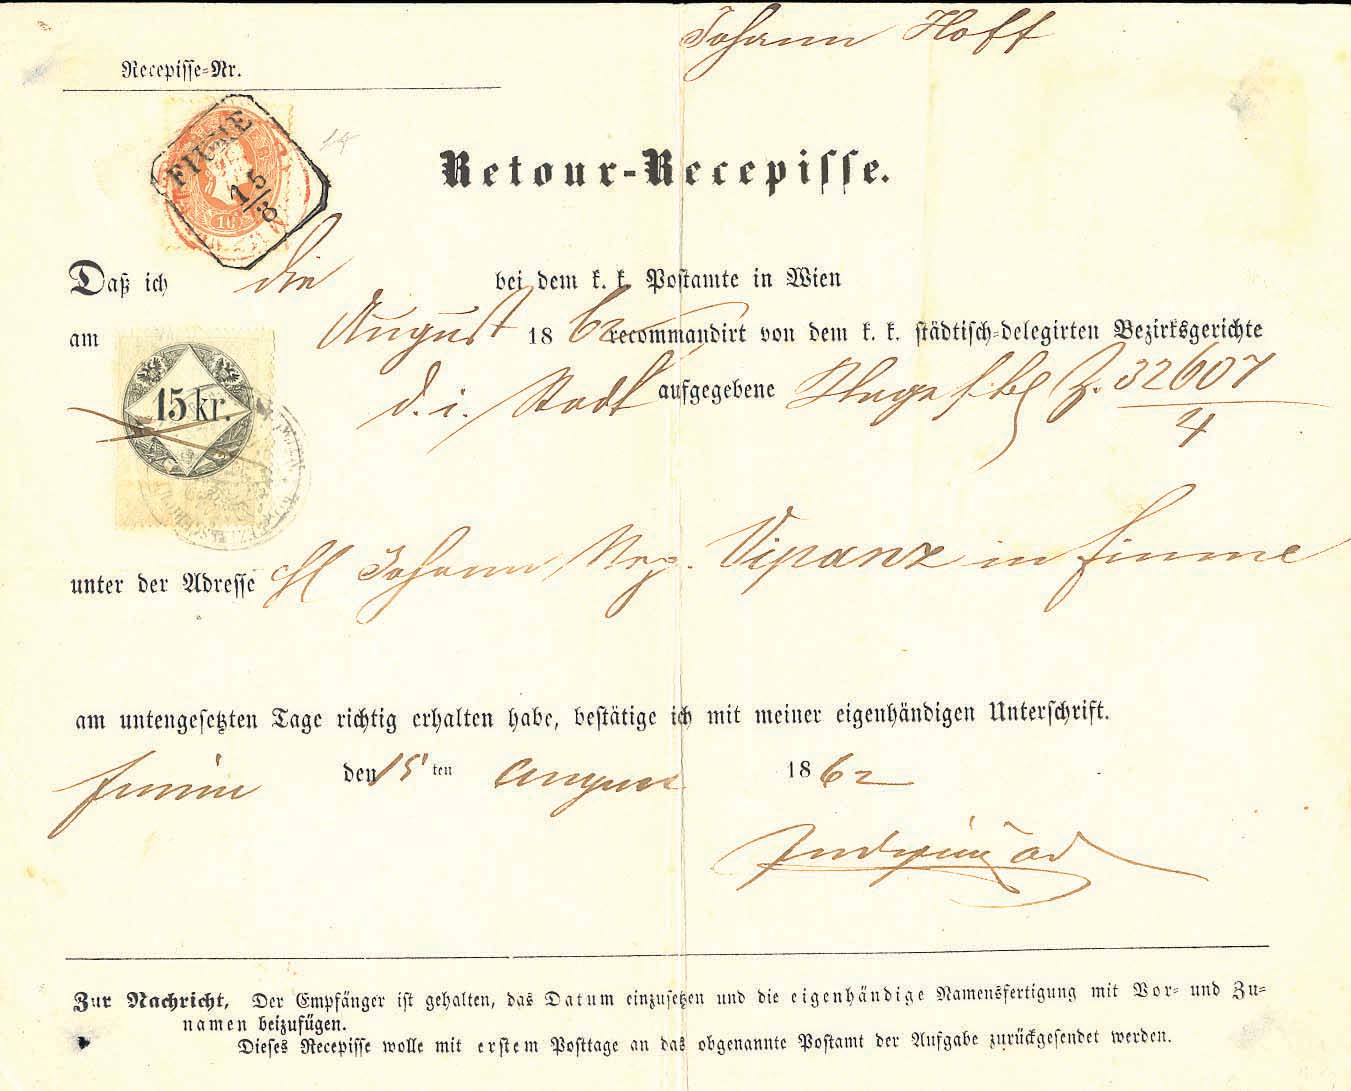 Johann Hoff
Recepisse-Nr.
FIUME
15/8
10
Retour-Recepisse.
Daß ich die bei dem k. k. Postamte in Wien
am August 1862 recommandirt von dem k. k. städtisch-delegirten Bezirksgerichte
15 kr.
d. i. Stadt aufgegebene Z. 32607/4
unter der Adresse Johann Vipanz in Fiume
am untengesetzten Tage richtig erhalten habe, bestätige ich mit meiner eigenhändigen Unterschrift.
den 15ten August 1862
Zur Nachricht, Der Empfänger ist gehalten, das Datum einzusetzen und die eigenhändige Namensfertigung mit Vor- und Zu-
namen beizufügen.
Dieses Recepisse wolle mit erstem Posttage an das obgenannte Postamt der Aufgabe zurückgesendet werden.